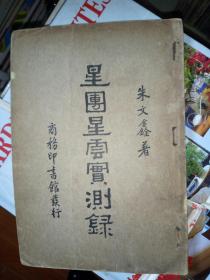 朱文鑫著
星團星雲實測錄
商務印書館發行